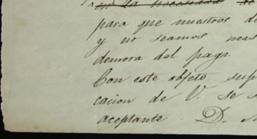 para que nuestros de
y no seamos
demora del pago
Con este objeto sup
cacion de V. se s
aceptante D.